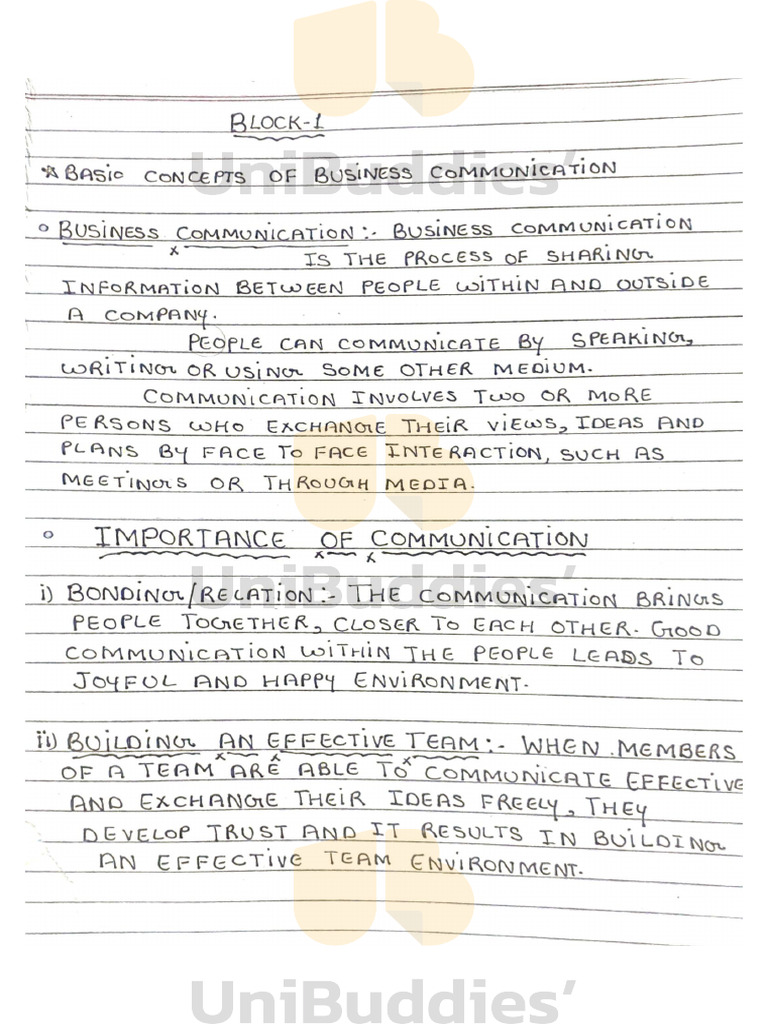 BLOCK-1
* BASIC CONCEPTS OF BUSINESS COMMUNICATION
UniBuddies'
° BUSINESS COMMUNICATION :- BUSINESS COMMUNICATION
IS THE PROCESS OF SHARING
INFORMATION BETWEEN PEOPLE WITHIN AND OUTSIDE
A COMPANY.
PEOPLE CAN COMMUNICATE BY SPEAKING,
WRITING OR USING SOME OTHER MEDIUM.
COMMUNICATION INVOLVES TWO OR MORE
PERSONS WHO EXCHANGE THEIR VIEWS, IDEAS AND
PLANS BY FACE TO FACE INTERACTION, SUCH AS
MEETINGS OR THROUGH MEDIA.
° IMPORTANCE OF COMMUNICATION
UniBuddies'
i) BONDING/RELATION:- THE COMMUNICATION BRINGS
PEOPLE TOGETHER, CLOSER TO EACH OTHER. GOOD
COMMUNICATION WITHIN THE PEOPLE LEADS TO
JOYFUL AND HAPPY ENVIRONMENT.
ii) BUILDING AN EFFECTIVE TEAM:- WHEN MEMBERS
OF A TEAM ARE ABLE TO COMMUNICATE EFFECTIVE
AND EXCHANGE THEIR IDEAS FREELY, THEY
DEVELOP TRUST AND IT RESULTS IN BUILDING
AN EFFECTIVE TEAM ENVIRONMENT.
UniBuddies'